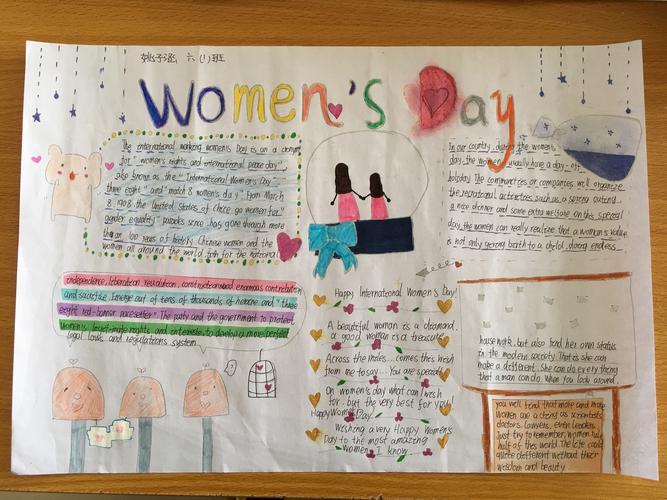 姚子涵 六(1)班
Women's Day
The international working women's Day is on a
for "women's rights and international peace day",
also known as the "International Women's Day",
three eight" and "match 8 women's day". From March
8, 1908 the United States of Chicago women for"
gender equality" parades since has gone through more
than 100 years of history. Chinese women and the
women all around the world toih for the national
independence, liberation, revolution, construction enormous contribution
and sacrifice. Emerge out of tens of thousands of heroine and "three
eight red-banner pacesetter". The party and the government to protect
women's legitimate rights and interests, to develop a more perfect
legal laws and regulations system.
Happy International Women's Day!
A beautiful woman is a diamond,
a good woman is a treasure
Across the miles... comes this wish
from me to say... You are special!
On women's day what can I wish
for, but the very best for you!
Happy Women's Day.
Wishing a very Happy Women's
Day to the most amazing
women I know.
In our country, during the women's
day, the women usually have a day-off
holiday. The communities or companies will organize
the recreational activities, such as a spring outing,
a nice dinner and some extra welfare. On this special
day, the women can really realize that a woman's value
is not only giving birth to a child, doing endless
housework, but also find her own status
in the modern society. That is she can
make a different. She can do everything
that a man can do. When you look around,
you will find that more and more
women are acting as scientists
doctors, lawyers, even leaders.
Just try to remember, women hold
half of this world. The life could
quite different without their
wisdom and beauty.